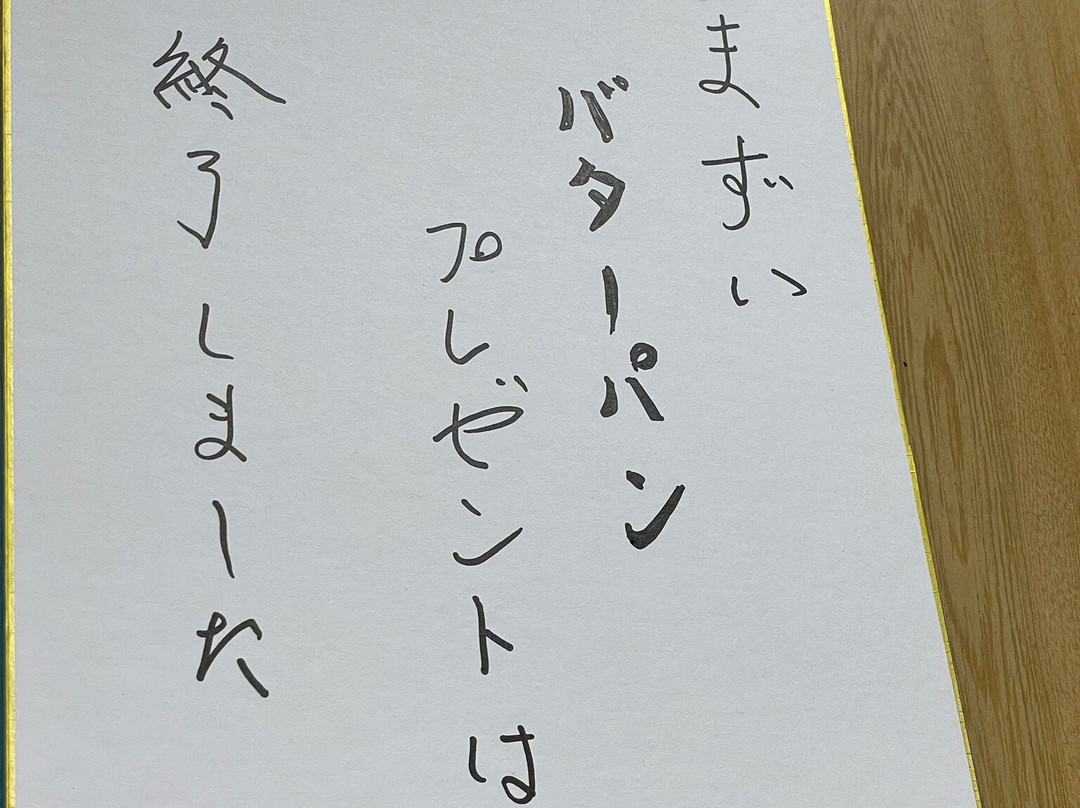 まずい
バターパン
プレゼントは
終了しました